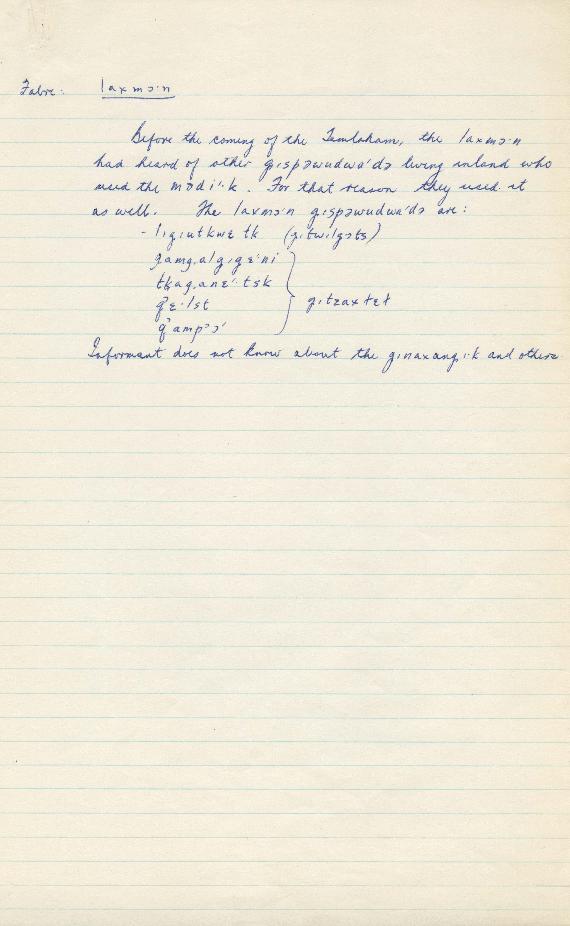 Fabre: laxmɔ·n
Before the coming of the Temlaham, the laxmɔ·n
had heard of other gıspəwudwa'də living inland who
used the mədi'·k. For that reason they used it
as well. The laxmɔ·n gıspəwudwa'də are:
- lıgıutkwɛ tk (gıtwılgɔts)
gamg.algıgɛ·ni
tkag.anɛ'·tsk
q̓ɛ·lst
q̓ampɔɔ'
gıtzaxłɛł
Informant does not know about the gınaxangı·k and others